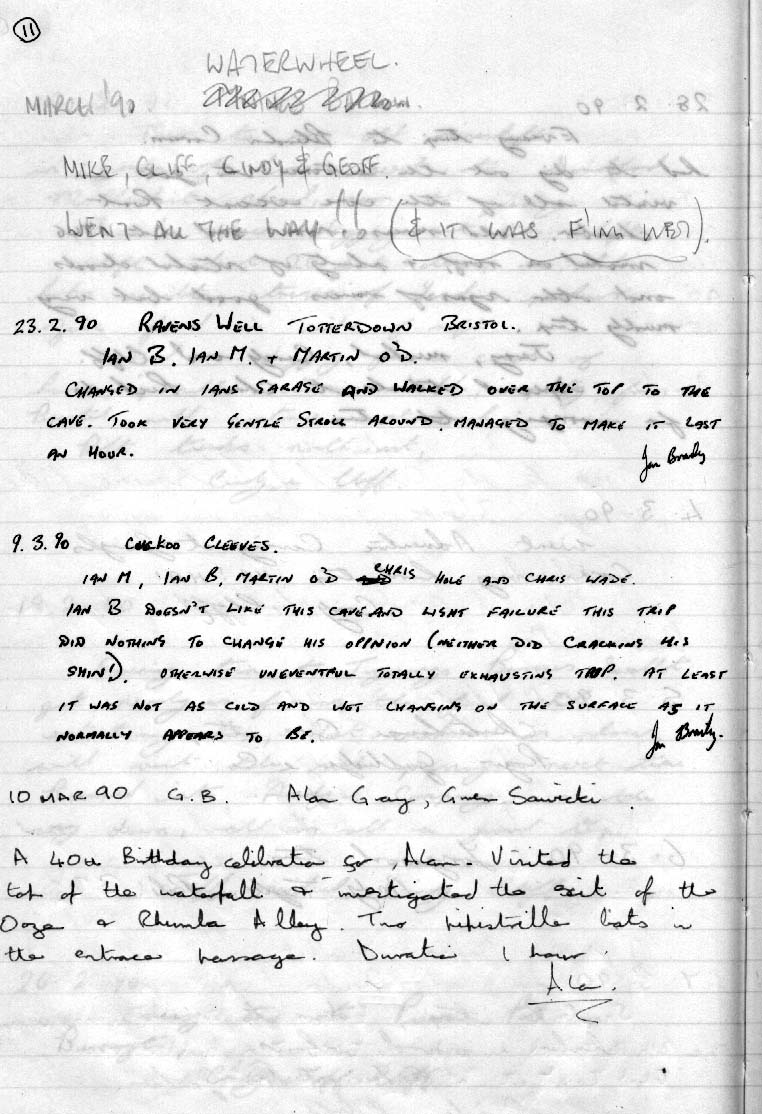 11
WATERWHEEL.
MARCH '90
MIKE, CLIFF, CINDY & GEOFF.
WENT ALL THE WAY!! (& IT WAS F'ING WET).
23.2.90 RAVENS WELL TOTTERDOWN BRISTOL.
IAN B. IAN M. + MARTIN O'D.
CHANGED IN IANS GARAGE AND WALKED OVER THE TOP TO THE
CAVE. TOOK VERY GENTLE STROLL AROUND. MANAGED TO MAKE IT LAST
AN HOUR.
9.3.90 CUCKOO CLEEVES.
IAN M, IAN B, MARTIN O'D CHRIS HOLE AND CHRIS WADE.
IAN B DOESN'T LIKE THIS CAVE AND LIGHT FAILURE THIS TRIP
DID NOTHING TO CHANGE HIS OPPNION (NEITHER DID CRACKING HIS
SHIN!). OTHERWISE UNEVENTFUL TOTALLY EXHAUSTING TRIP. AT LEAST
IT WAS NOT AS COLD AND WET CHANGING ON THE SURFACE AS IT
NORMALLY APPEARS TO BE.
10 MAR 90 G.B. Alan Gray, Gwen Sawicki.
A 40th Birthday celibration for Alan. Visited the
top of the waterfall & investigated the exit of the
Ooze & Rhumba Alley. Two pipistrille bats in
the entrace passage. Duration 1 hour.
Alan.